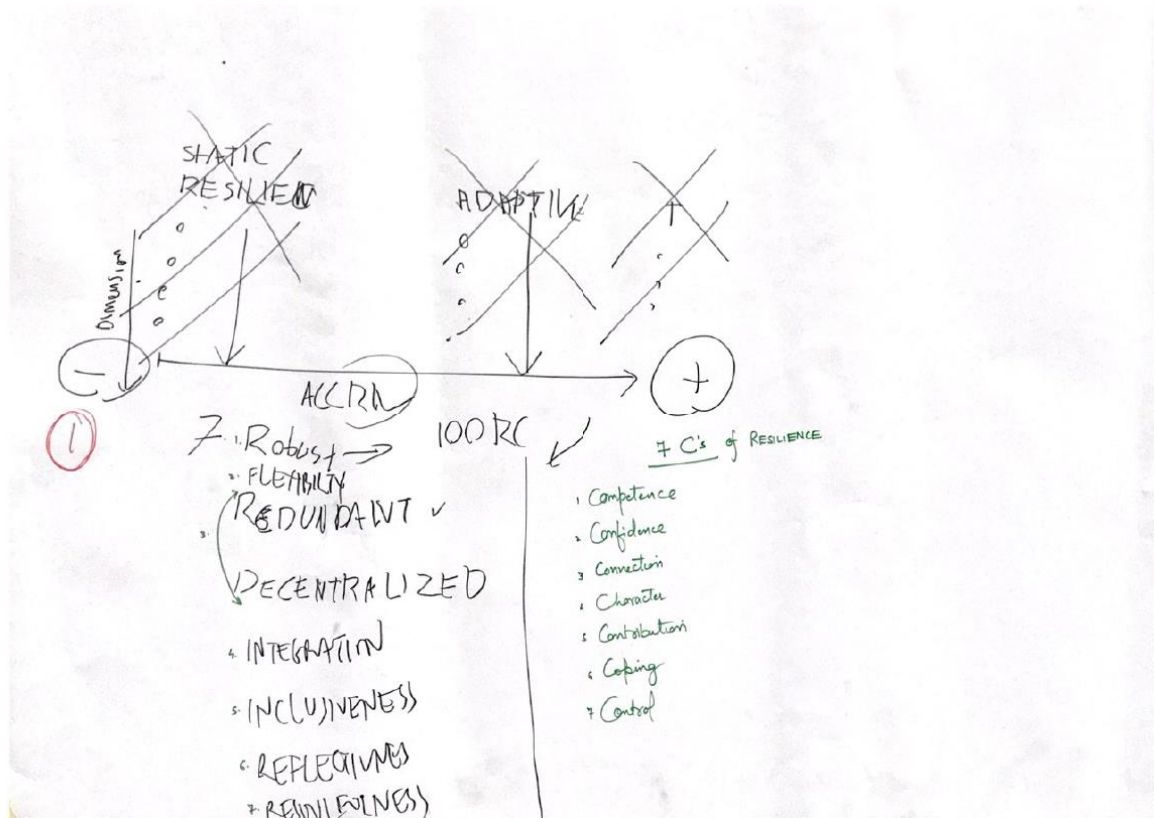 STATIC
RESILIEN
ADAPTIVE
Dimension
-
+
ACCRA
1
7 1. Robust → 100RC
2. FLEXIBILTY
3. REDUNDANT ✓
DECENTRALIZED
4. INTEGRATION
5. INCLUSIVENESS
6. REFLECTIVNES
7
7 C's of RESILIENCE
1 Competence
2 Confidence
3 Connection
4 Character
5 Contribution
6 Coping
7 Control